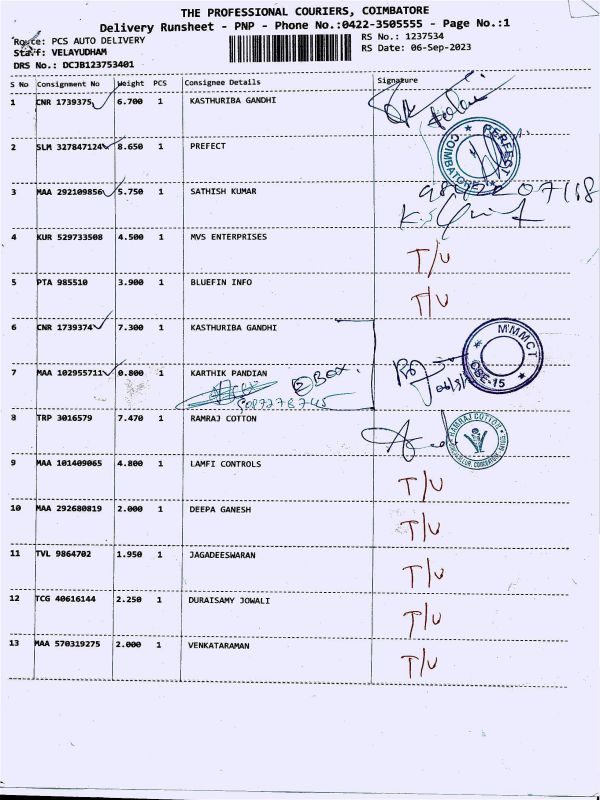 THE PROFESSIONAL COURIERS, COIMBATORE
Delivery Runsheet - PNP - Phone No.:0422-3505555 - Page No.:1
Route: PCS AUTO DELIVERY
RS No.: 1237534
Staff: VELAYUDHAM
RS Date: 06-Sep-2023
DRS No.: DCJB123753401
S No Consignment No Weight PCS Consignee Details Signature
1 CNR 1739375 6.700 1 KASTHURIBA GANDHI
2 SLM 327847124 8.650 1 PREFECT
PERFECT COIMBATORE
3 MAA 292109856 5.750 1 SATHISH KUMAR
4 KUR 529733508 4.500 1 MVS ENTERPRISES T/U
5 PTA 985510 3.900 1 BLUEFIN INFO T/U
6 CNR 1739374 7.300 1 KASTHURIBA GANDHI
MMMCT CBE-15
7 MAA 102955711 0.800 1 KARTHIK PANDIAN
2 BOX.
8 TRP 3016579 7.470 1 RAMRAJ COTTON
RAMRAJ COTTON
9 MAA 101409065 4.800 1 LAMFI CONTROLS T/U
10 MAA 292680819 2.000 1 DEEPA GANESH T/U
11 TVL 9864702 1.950 1 JAGADEESWARAN T/U
12 TCG 40616144 2.250 1 DURAISAMY JOWALI T/U
13 MAA 570319275 2.000 1 VENKATARAMAN T/U